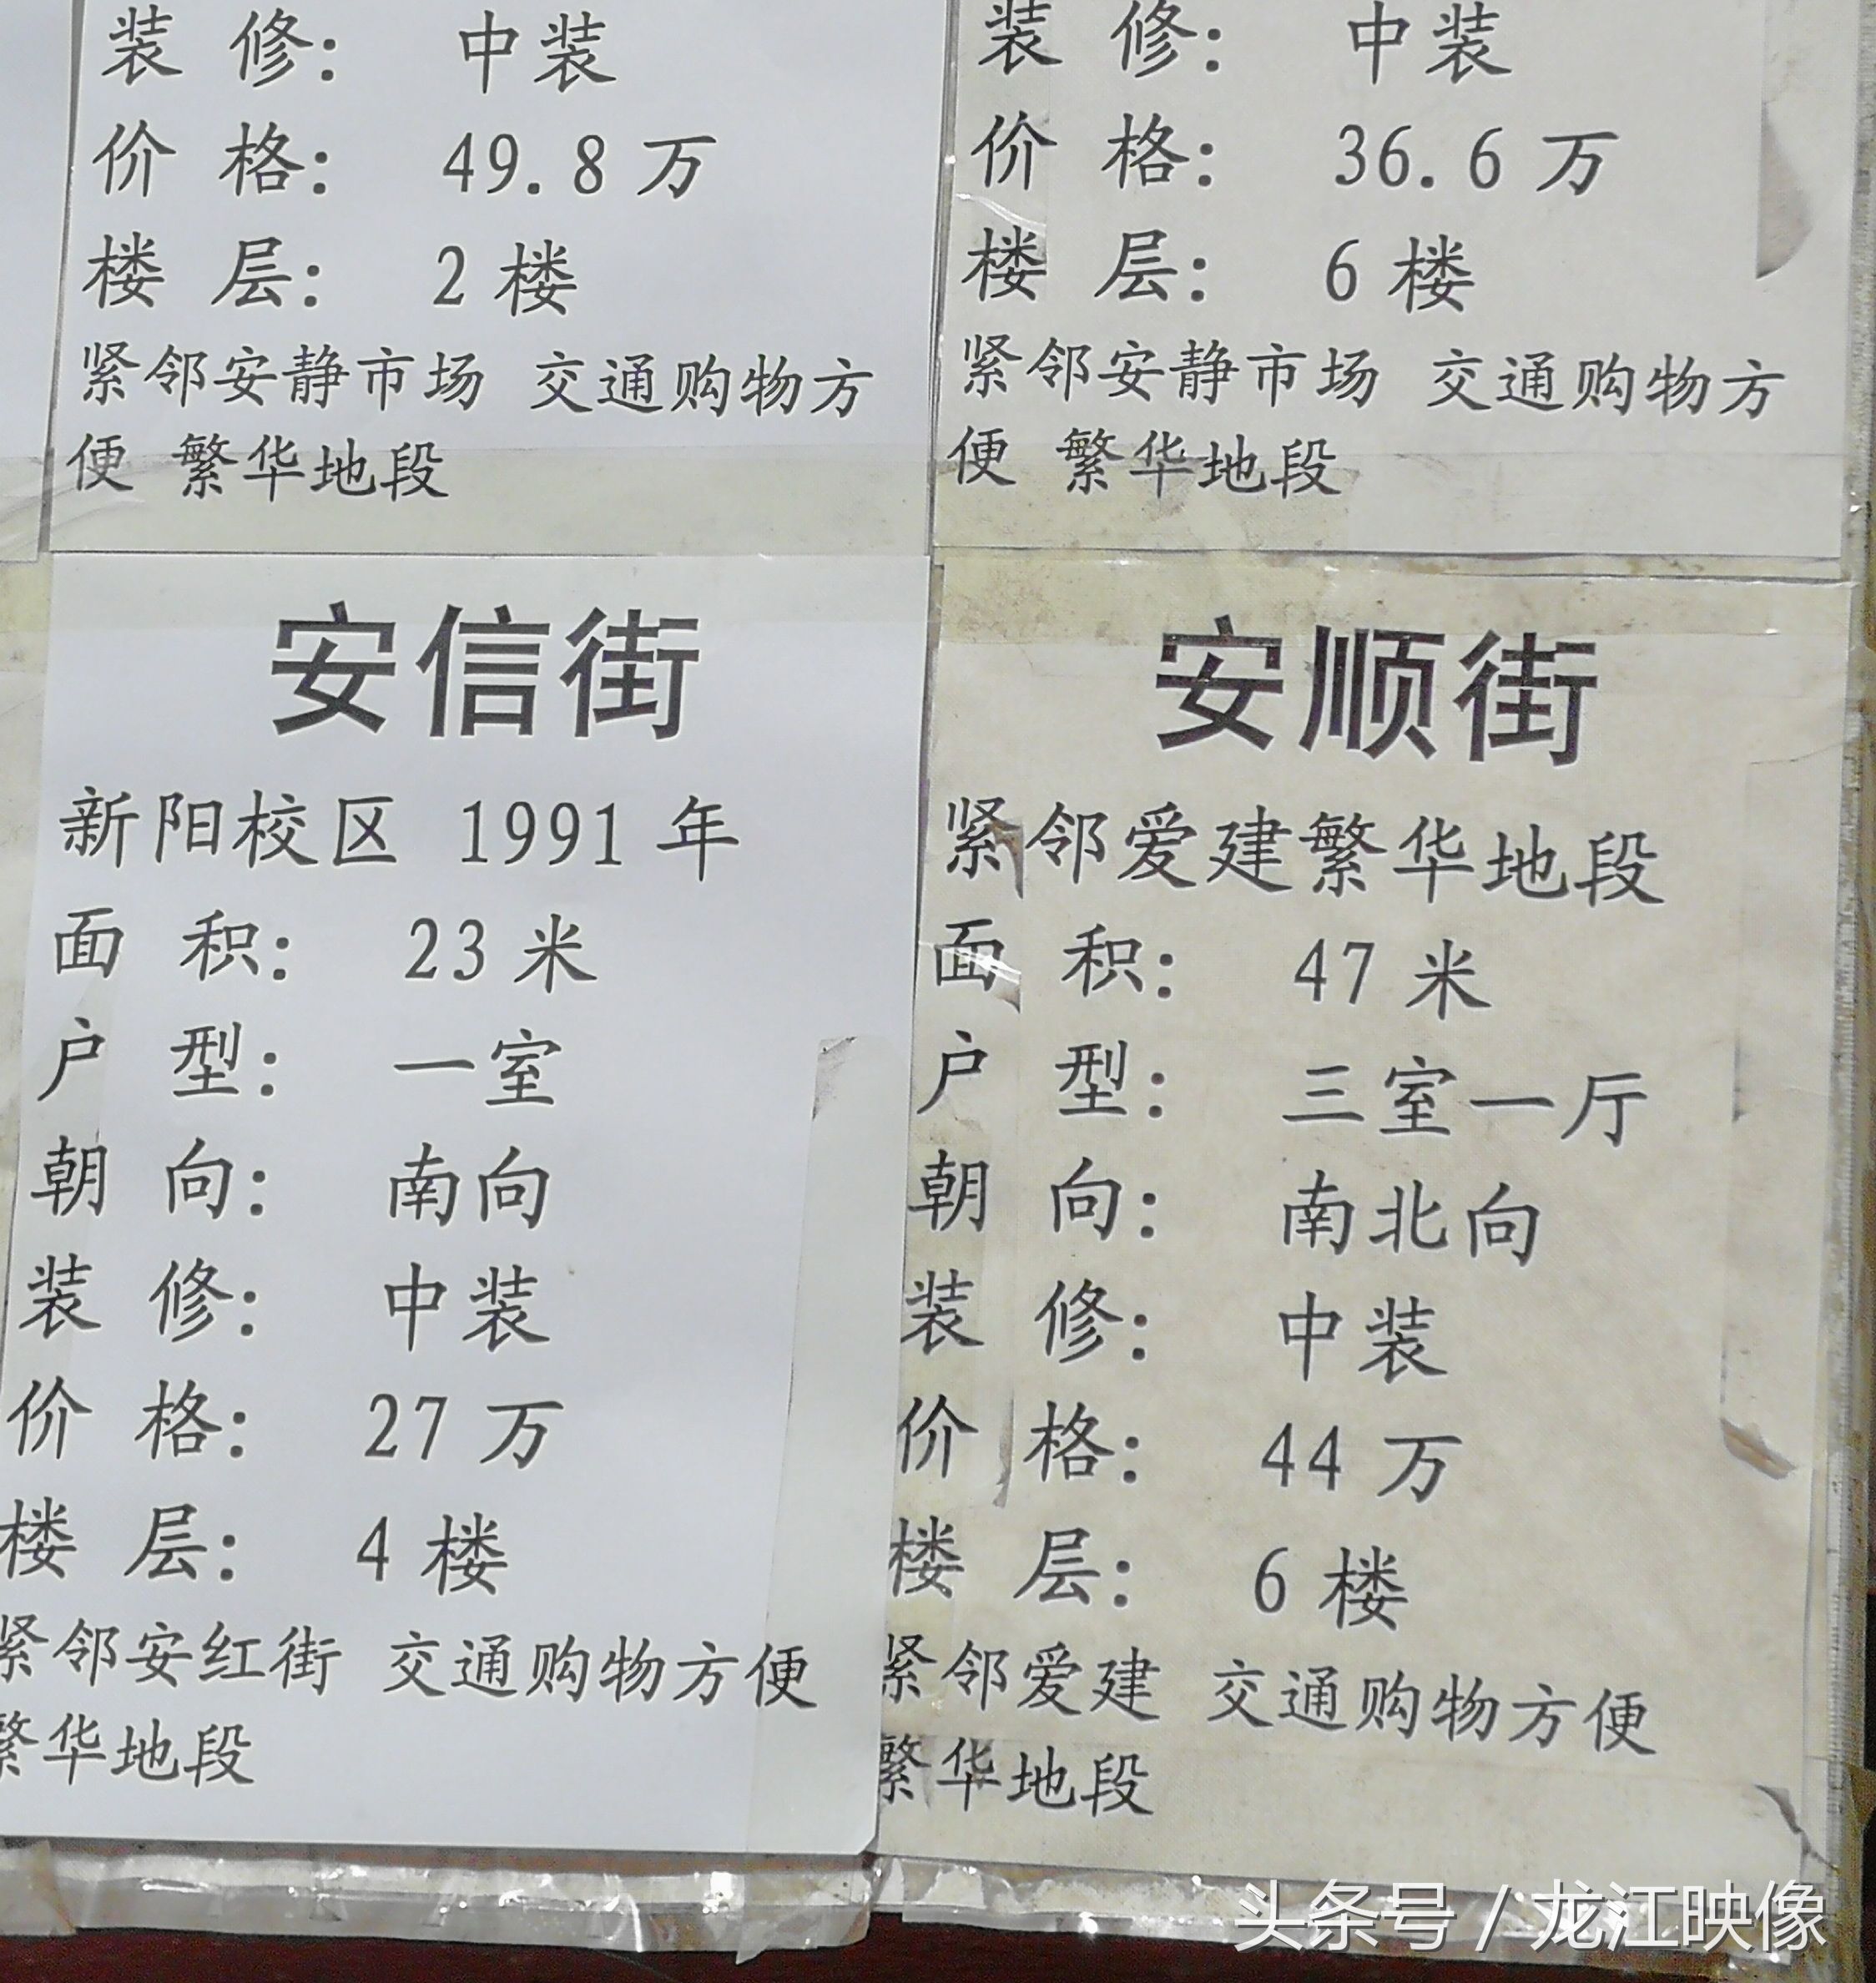 装 修： 中装
价 格： 49.8 万
楼 层： 2 楼
紧邻安静市场 交通购物方
便 繁华地段
装 修： 中装
价 格： 36.6 万
楼 层： 6 楼
紧邻安静市场 交通购物方
便 繁华地段
安信街
新阳校区 1991 年
面 积： 23 米
户 型： 一室
朝 向： 南向
装 修： 中装
价 格： 27 万
楼 层： 4 楼
紧邻安红街 交通购物方便
繁华地段
安顺街
紧邻爱建繁华地段
面 积： 47 米
户 型： 三室一厅
朝 向： 南北向
装 修： 中装
价 格： 44 万
楼 层： 6 楼
紧邻爱建 交通购物方便
繁华地段
头条号 / 龙江映像